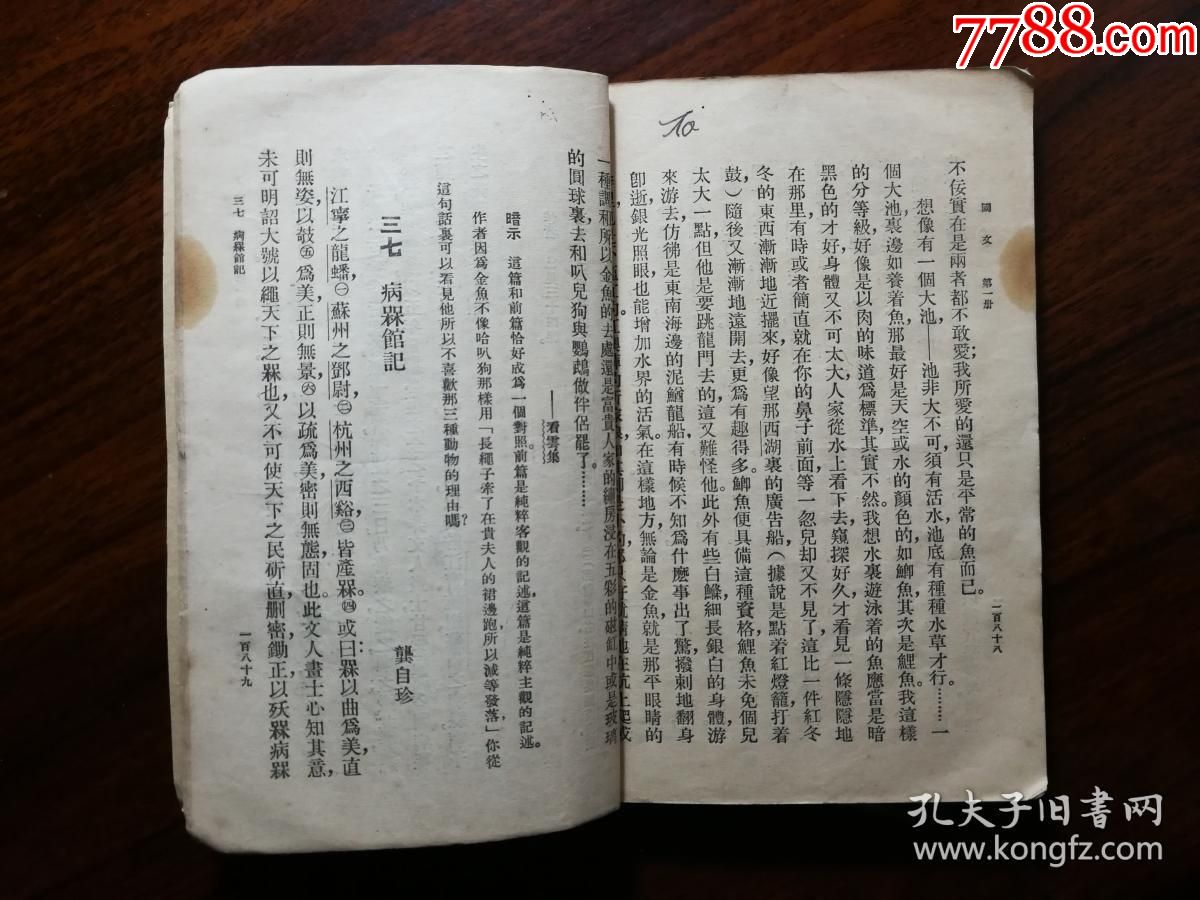 國文 第一册
一百八十八
不佞實在是兩者都不敢愛,我所愛的還只是平常的魚而已。
想像有一個大池——池非大不可,須有活水,池底有種種水草才行………一
個大池,裏邊如養着魚,那最好是天空或水的顏色的,如鯽魚,其次是鯉魚。我這樣
的分等級,好像是以肉的味道爲標準,其實不然。我想水裏遊泳着的魚應當是暗
黑色的才好,身體又不可太大,人家從水上看下去,窺探好久,才看見一條隱隱地
在那里,有時或者簡直就在你的鼻子前面,等一忽兒却又不見了,這比一件紅冬
冬的東西漸漸地近擺來,好像望那西湖裏的廣告船,(據說是點着紅燈籠,打着
鼓)隨後又漸漸地遠開去,更爲有趣得多。鯽魚便具備這種資格,鯉魚未免個兒
太大一點,但他是要跳龍門去的,這又難怪他。此外有些白鰷,細長銀白的身體,游
來游去,仿彿是東南海邊的泥鰌龍船,有時候不知爲什麽事出了驚,撥剌地翻身
卽逝,銀光照眼,也能增加水界的活氣。在這樣地方,無論是金魚,就是那平眼睛的
一種調和,所以金魚的去處還是富貴人家的繡房,浸在五彩的磁缸中,或是玻璃
的圓球裏,去和叭兒狗與鸚鵡做伴侣罷了………
——看雲集
暗示 這篇和前篇恰好成爲一個對照。前篇是純粹客觀的記述,這篇是純粹主觀的記述。
作者因爲金魚不像哈叭狗那樣用「長繩子牽了在貴夫人的裙邊跑,所以減等發落」,你從
這句話裏可以看見他所以不喜歡那三種動物的理由嗎?
三七 病槑館記
龔自珍
江寧之龍蟠㊀,蘇州之鄧尉㊁,杭州之西谿㊂,皆產槑㊃。或曰:槑以曲爲美,直
則無姿;以敧㊄爲美,正則無景㊅;以疏爲美,密則無態;固也。此文人畫士心知其意,
未可明詔大號以繩天下之槑也;又不可使天下之民,斫直,删密,鋤正,以殀槑病槑
三七 病槑館記
一百八十九
7788.com
孔夫子旧书网
www.kongfz.com